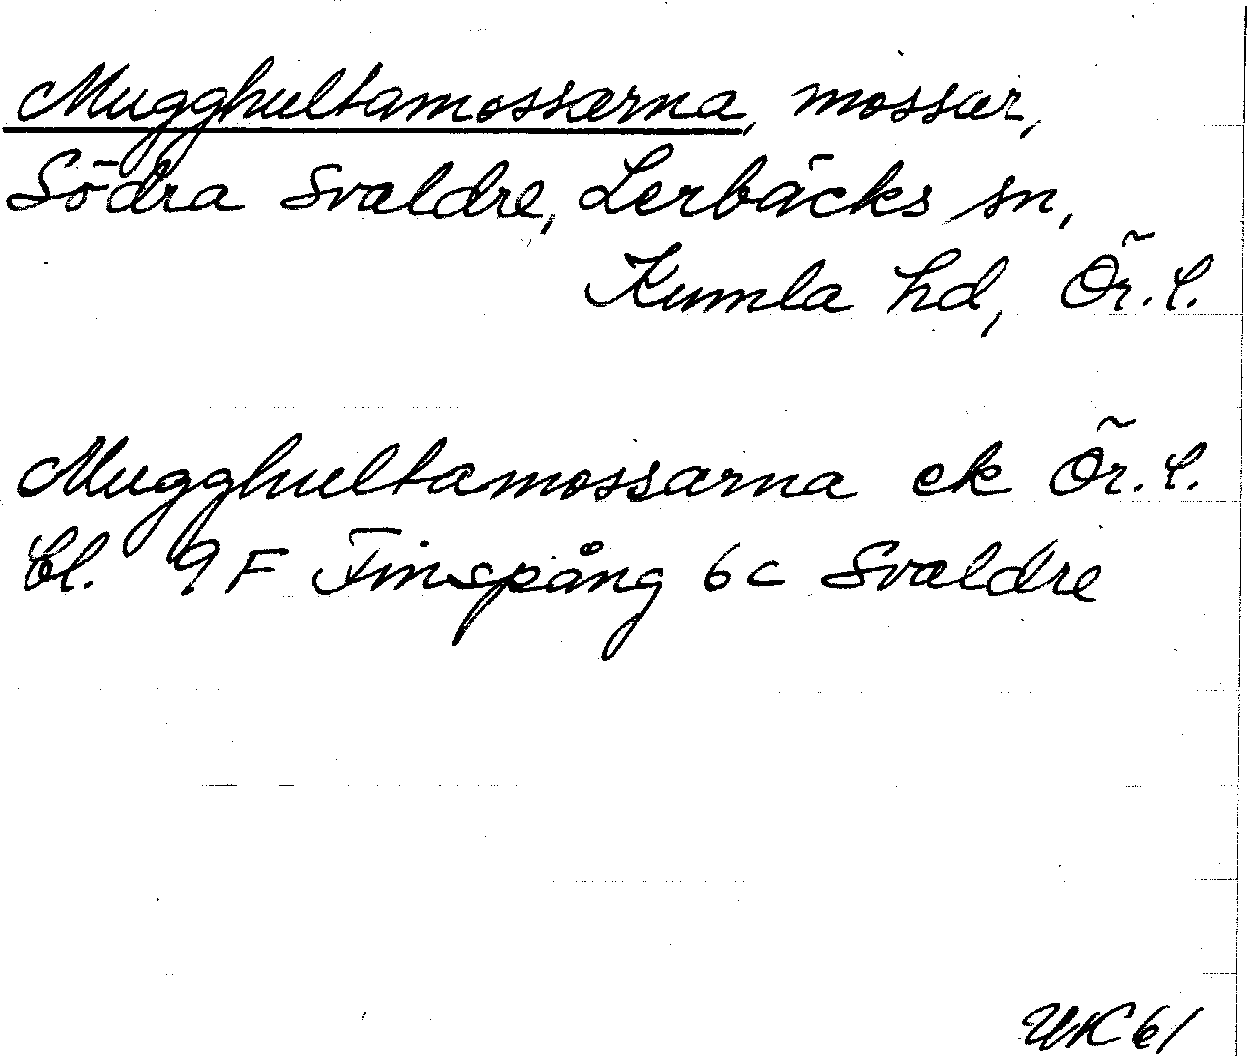 Mugghultamossarna, mossar,
Södra Svaldre, Lerbäcks sn,
Kumla hd, Ör. l.
Mugghultamossarna ek Ör. l.
bl. 9F Finspång 6c Svaldre
UK 61